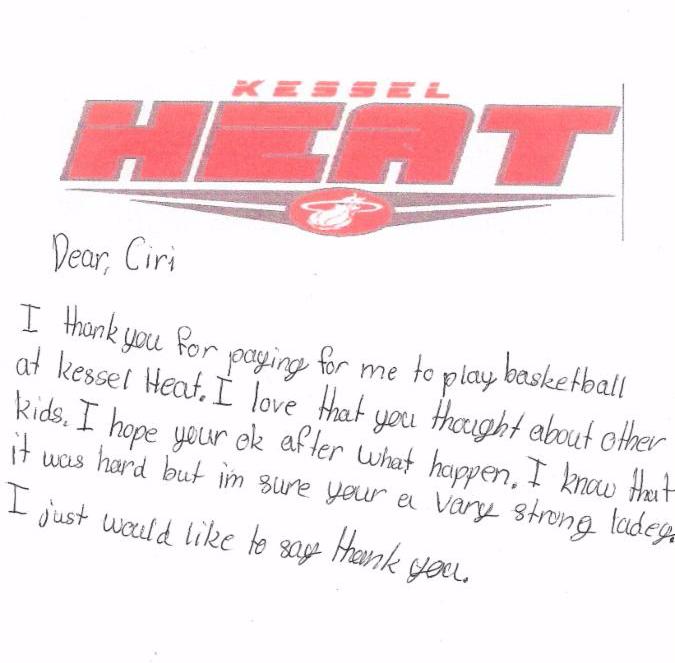 KESSEL
HEAT
Dear, Ciri
I thank you for paying for me to play basketball
at kessel Heat. I love that you thought about other
kids. I hope your ok after what happen. I know that
it was hard but im sure your a vary strong ladey.
I just would like to say thank you.